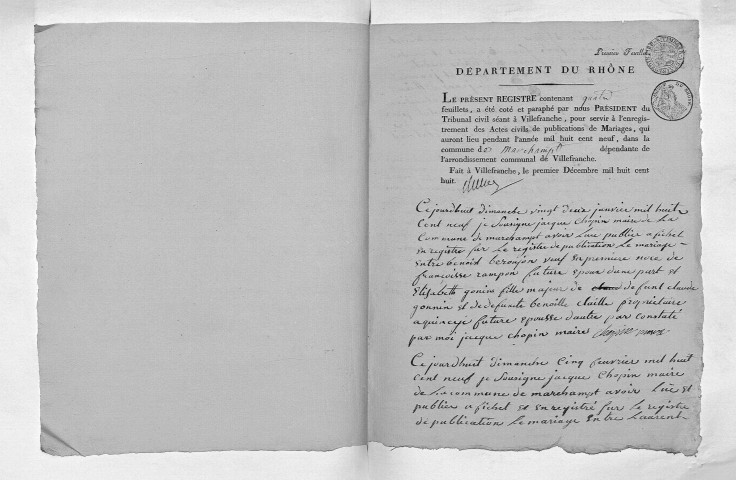 Premier Feuillet
DÉPARTEMENT DU RHÔNE
LE PRÉSENT REGISTRE contenant quatre
feuillets, a été coté et paraphé par nous PRÉSIDENT du
Tribunal civil séant à Villefranche, pour servir à l'enregis-
trement des Actes civils de publications de Mariages, qui
auront lieu pendant l'année mil huit cent neuf, dans la
commune de Marchampt dépendante de
l'arrondissement communal de Villefranche.
Fait à Villefranche, le premier Décembre mil huit cent
huit.
Cejourdhuit dimanche vingt deux janvier mil huit
Cent neuf je Sousigne jacque Chopin maire de La
Commune de marchampt avoir Lue publier afichet
enregistre sur le registre de publication le mariage
Entre benoid veuf en premiere nose de
francoisse rampon future epoux dune part et
Elisabeth gonins fille major de defunt claude
gonnin et dedefunte benoitte proprietaire
future epousse dautre par constaté
par moi jacque chopin maire
Ce jourdhuit dimanche Cinq feuvrier mil huit
Cent neuf je Sousigne jacque Chopin maire
de La commune de marchampt avoir Lue et
publier afichet et enregistré sur le registre
de publication le mariage Entre Laurent